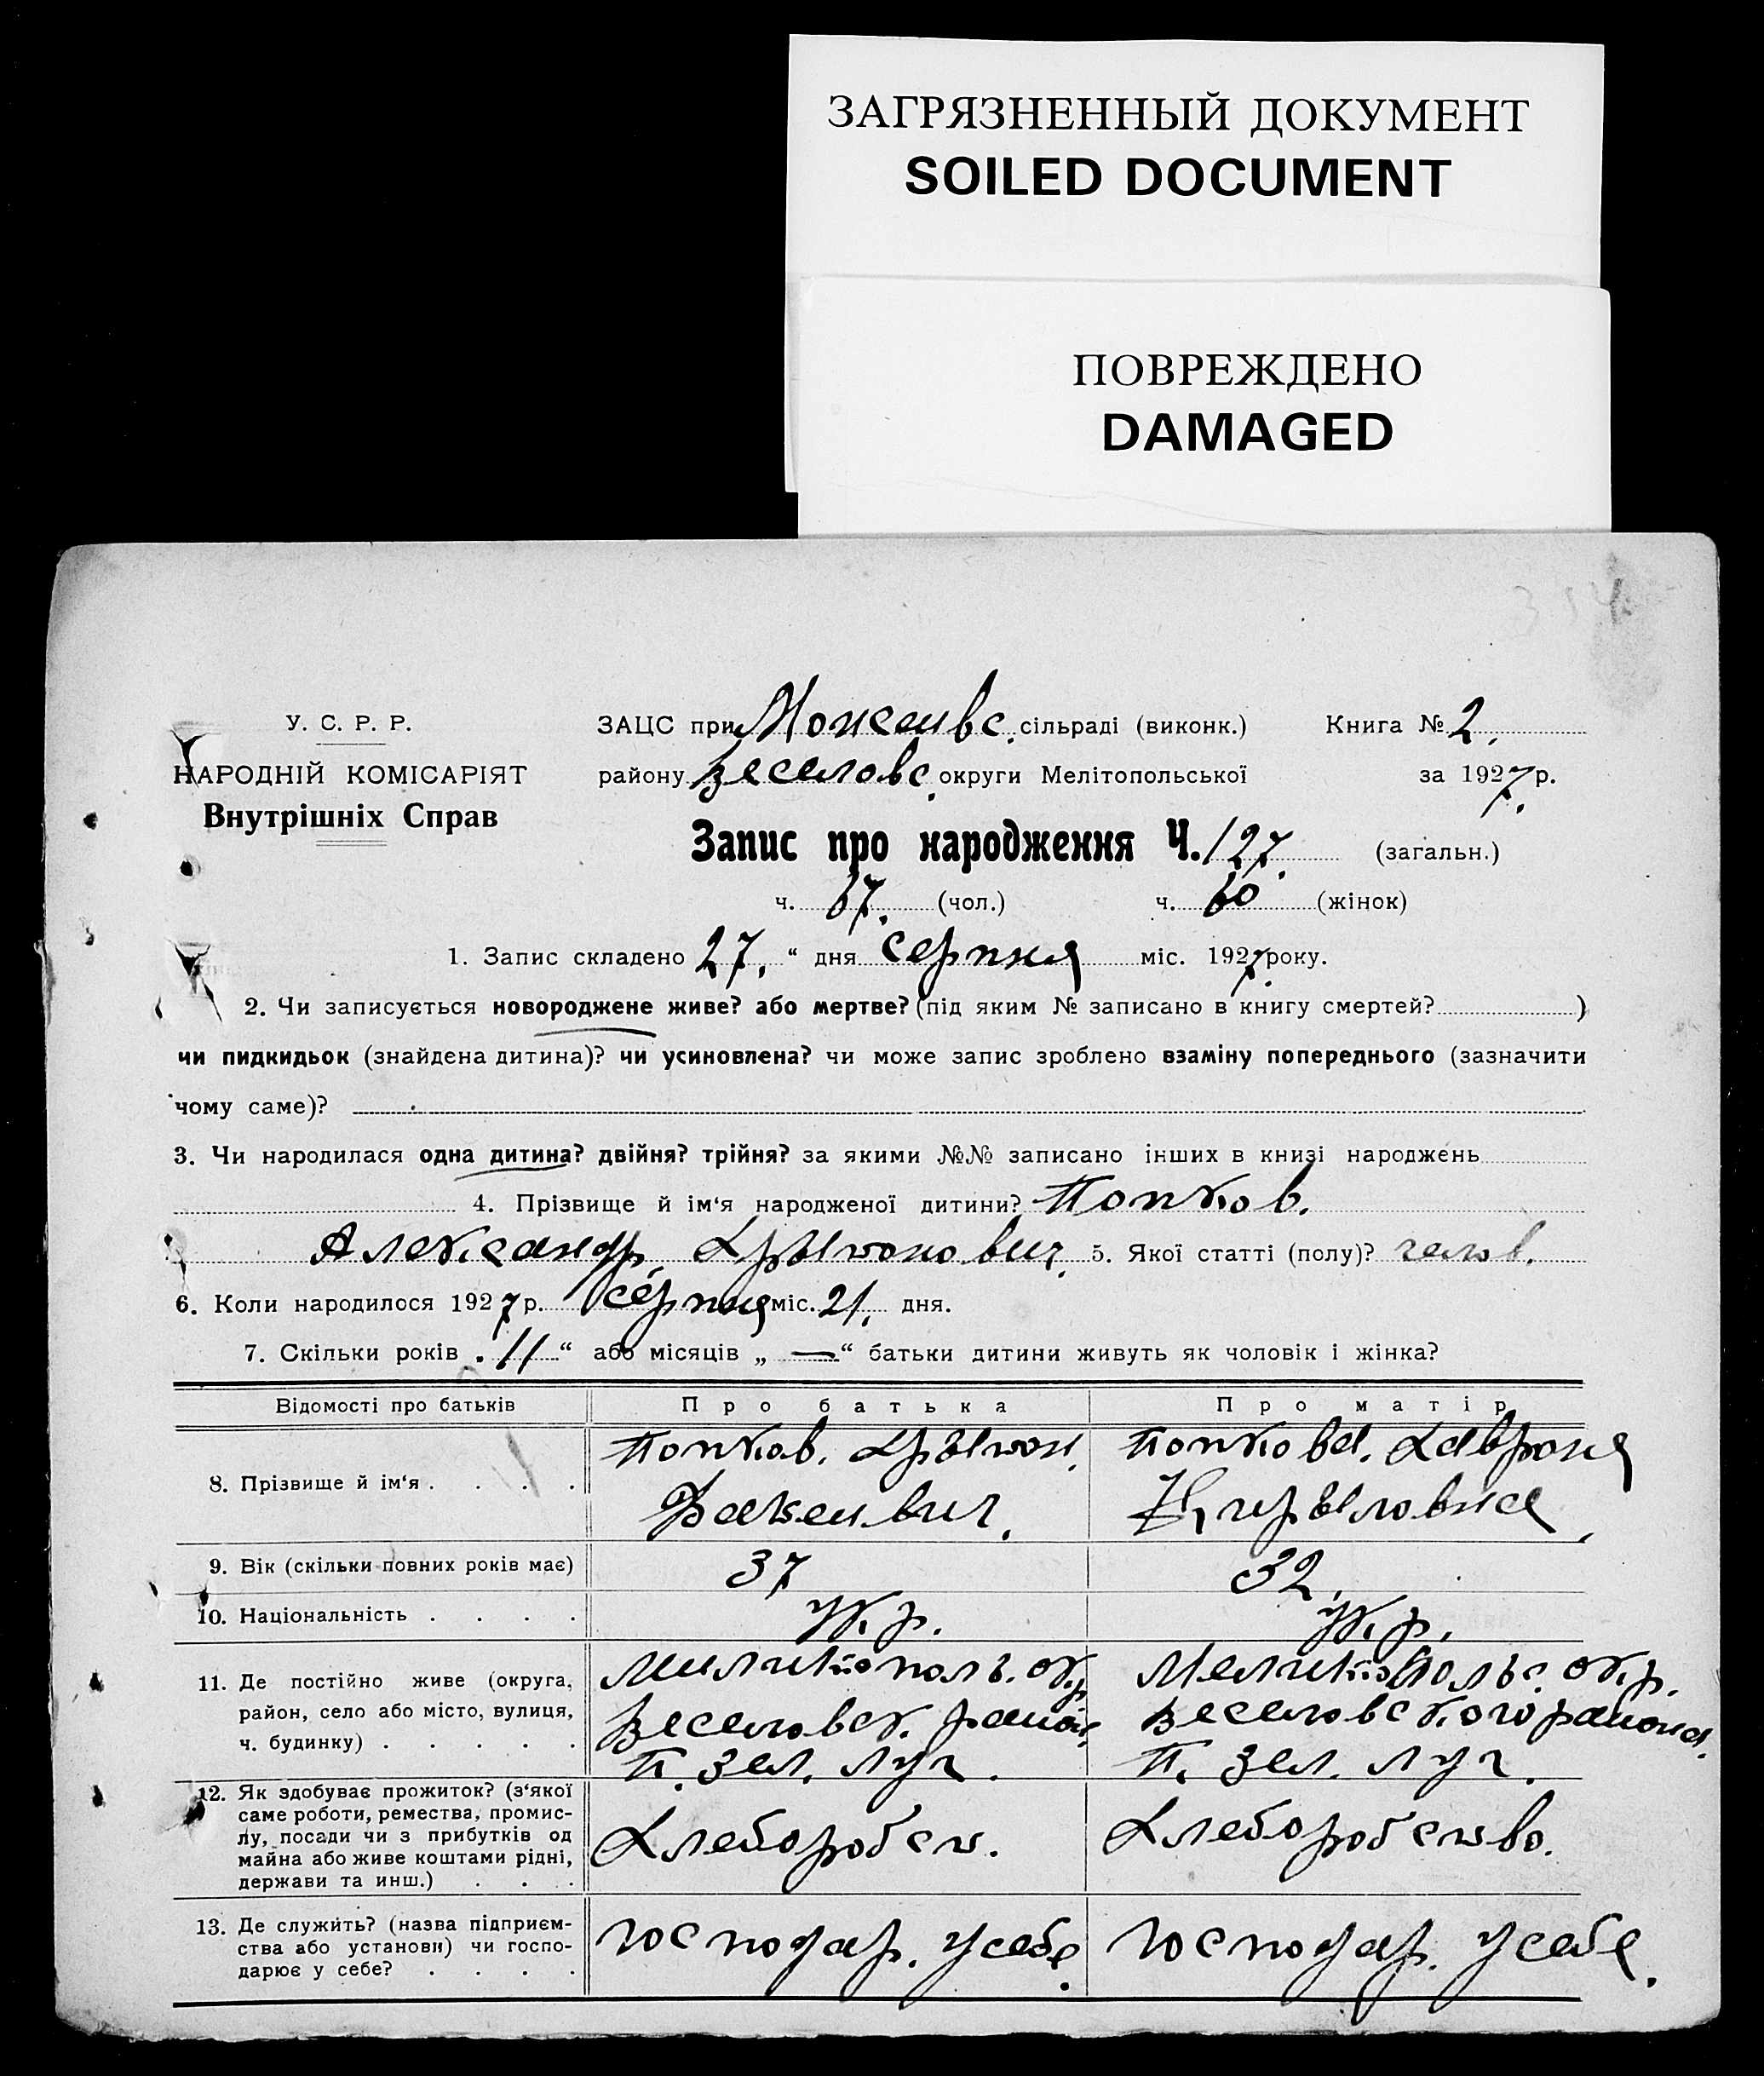 ЗАГРЯЗНЕННЫЙ ДОКУМЕНТ
SOILED DOCUMENT
ПОВРЕЖДЕНО
DAMAGED
У. С. Р. Р.
НАРОДНІЙ КОМІСАРІЯТ
Внутрішніх Справ
ЗАЦС при сільраді (виконк.) Книга № 2.
району Веселовс. округи Мелітопольської за 1927 р.
Запис про народження Ч. 127. (загальн.)
ч. 67. (чол.) ч. 60 (жінок)
1. Запис складено 27. “ дня серпня міс. 1927 року.
2. Чи записується новороджене живе? або мертве? (під яким № записано в книгу смертей? )
чи пидкидьок (знайдена дитина)? чи усиновлена? чи може запис зроблено взаміну попереднього (зазначити
чому саме)?
3. Чи народилася одна дитина? двійня? трійня? за якими №№ записано інших в книзі народжень
4. Прізвище й ім‘я народженої дитини? Попков.
Александр 5. Якої статті (полу)? челов.
6. Коли народилося 1927 р. серпня міс. 21. дня.
7. Скільки років „ 11 “ або місяців „ — “ батьки дитини живуть як чоловік і жінка?
Відомості про батьків Про батька Про матір
8. Прізвище й ім‘я . . . . Попков. Попкова. Хавроня
Кирыловна.
9. Вік (скільки повних років має) 37 32.
10. Національність . . . . Укр. Укр.
11. Де постійно живе (округа, Милитополь. окр Мелитопольс. окр.
район, село або місто, вулиця, Веселовск. район. Веселовского района.
ч. будинку) . . . . . П. Зел. Луг. П. Зел. Луг.
12. Як здобуває прожиток? (з‘якої
саме роботи, ремества, промис-
лу, посади чи з прибутків од
майна або живе коштами рідні,
держави та инш.) . . . Хлеборобст. Хлеборобство.
13. Де служить? (назва підприєм-
ства або установи) чи госпо-
дарює у себе? . . . . господар. у себе. господар. у себе.